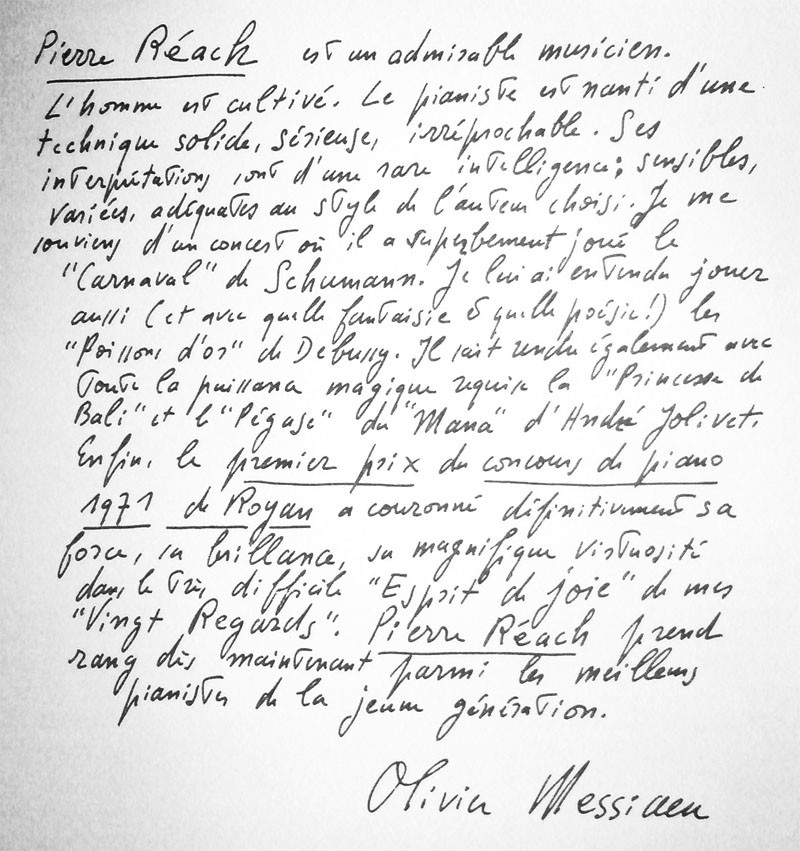 Pierre Réach est un admirable musicien.
L'homme est cultivé. Le pianiste est nanti d'une
technique solide, sérieuse, irréprochable. Ses
interprétations sont d'une rare intelligence; sensibles,
variées, adéquates au style de l'auteur choisi. Je me
souviens d'un concert où il a superbement joué le
"Carnaval" de Schumann. Je l'ai entendu jouer
aussi (et avec quelle fantaisie & quelle poésie!) les
"Poissons d'or" de Debussy. Il sait rendre également avec
toute la puissance magique requise la "Princesse de
Bali" et le "Pégase" du "Mana" d'André Jolivet.
Enfin, le premier prix du concours de piano
1971 de Royan a couronné définitivement sa
force, sa brillance, sa magnifique virtuosité
dans le très difficile "Esprit de joie" de mes
"Vingt Regards". Pierre Réach prend
rang dès maintenant parmi les meilleurs
pianistes de la jeune génération.
Olivier Messiaen